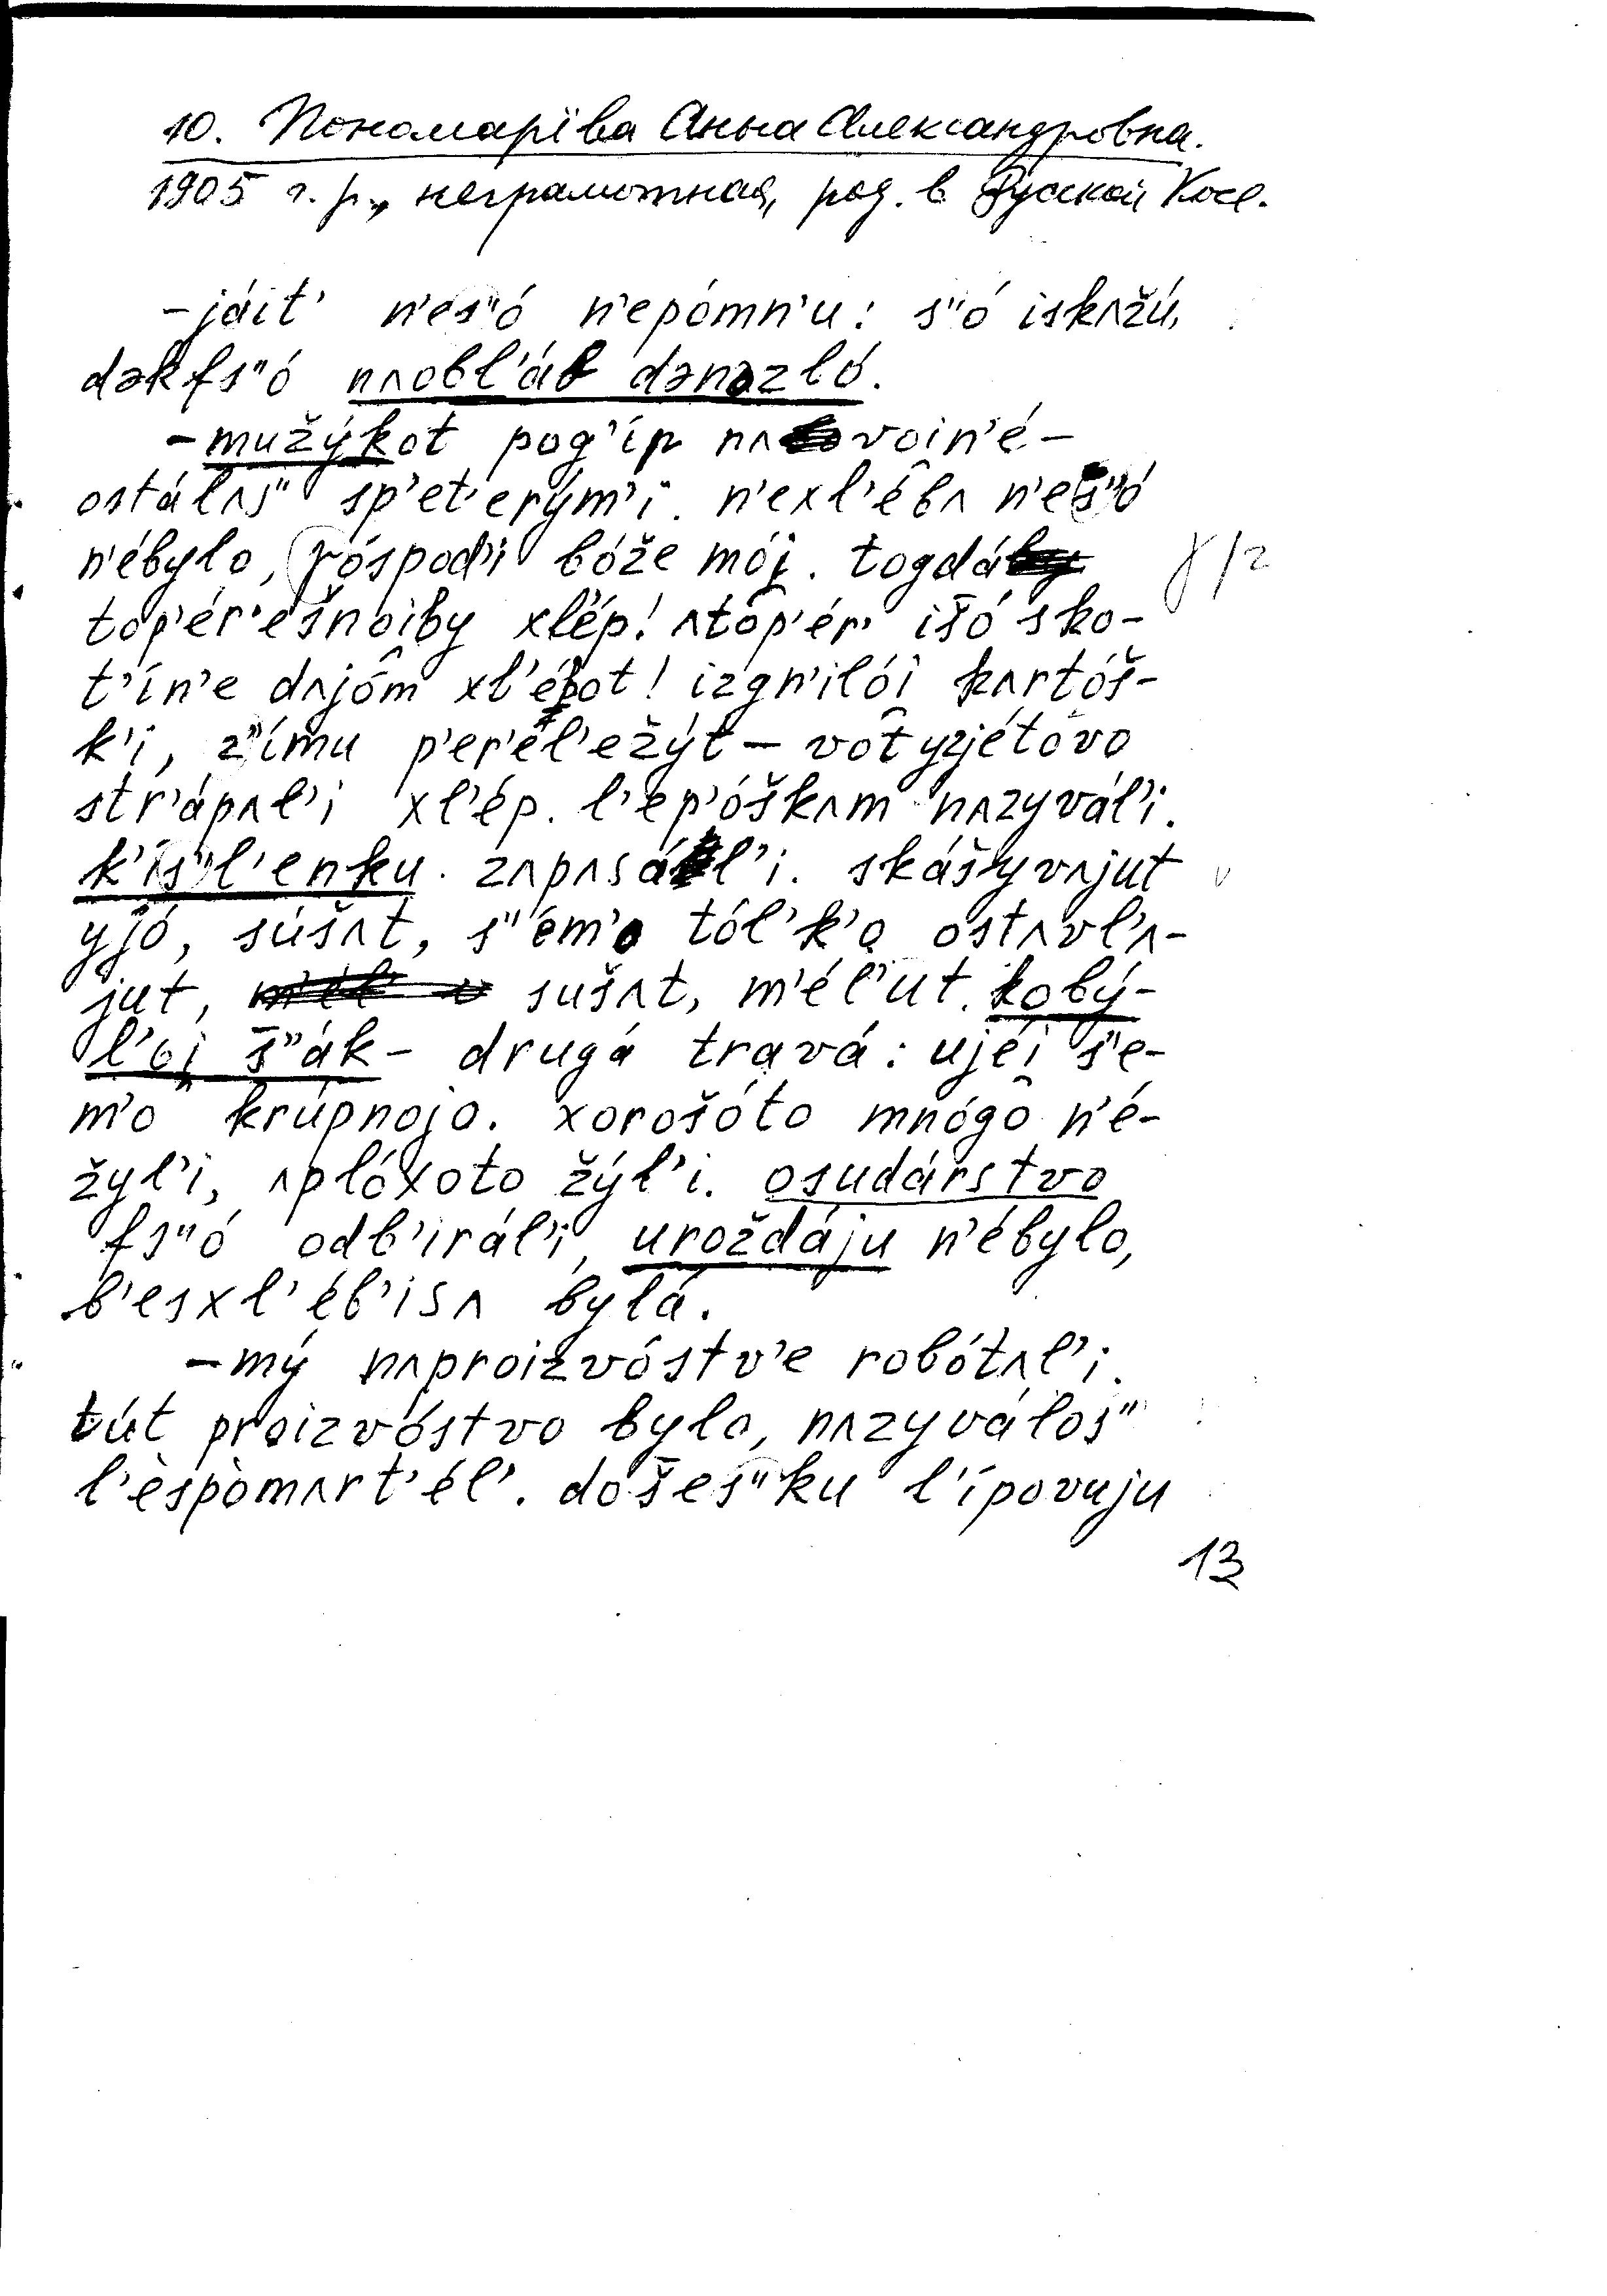 10. Пономарёва Анна Александровна.
1905 г. р., неграмотная, род. в Русской Косе.
– jáit' n'es"ó n'epómn'u: s"ó iskʌžú,
dəkfs"ó nʌobl'áf dənəzló.
– mužýkot pog'íp nʌvoin'é –
ostálʌs" sp'et'erým'i. n'exl'ébʌ n'es"ó
n'ébylo, γóspod'i bóže mój. togdá γ/г
top'ér'ešnoiby xl'ép! ʌtôp'ér' iš̄ó sko-
t'ín'e dʌjôm xl'ébot! izgn'ilói kʌrtóš-
k'i, z"ímu p'er'el'ežýt – vôtyzjétovo
str'ápʌl'i xl'ép. l'ep'óškʌm nʌzyvál'i.
k'ís"l'enku. zʌpʌsál'i. skášyvʌjut
yjó, súšʌt, s"ém'o tól'k'o ostʌvl'ʌ-
jut, sušʌt, m'él'ut. kobý-
l'oj š"ák – drugá travá: ujéi s"e-
m'o krúpnojo. xorošóto mnógô n'é-
žyl'i, ʌplóxoto žýl'i. osudárstvo
fs"ó odb'irál'i, uroždáju n'ébylo,
b'esxl'éb'isʌ bylá.
– mý nʌproizvóstv'e robótʌl'i.
tút proizvóstvo bylo, nʌzyválos"
l'èspòmʌrt'él'. doš̄es"ku l'ípovuju
13